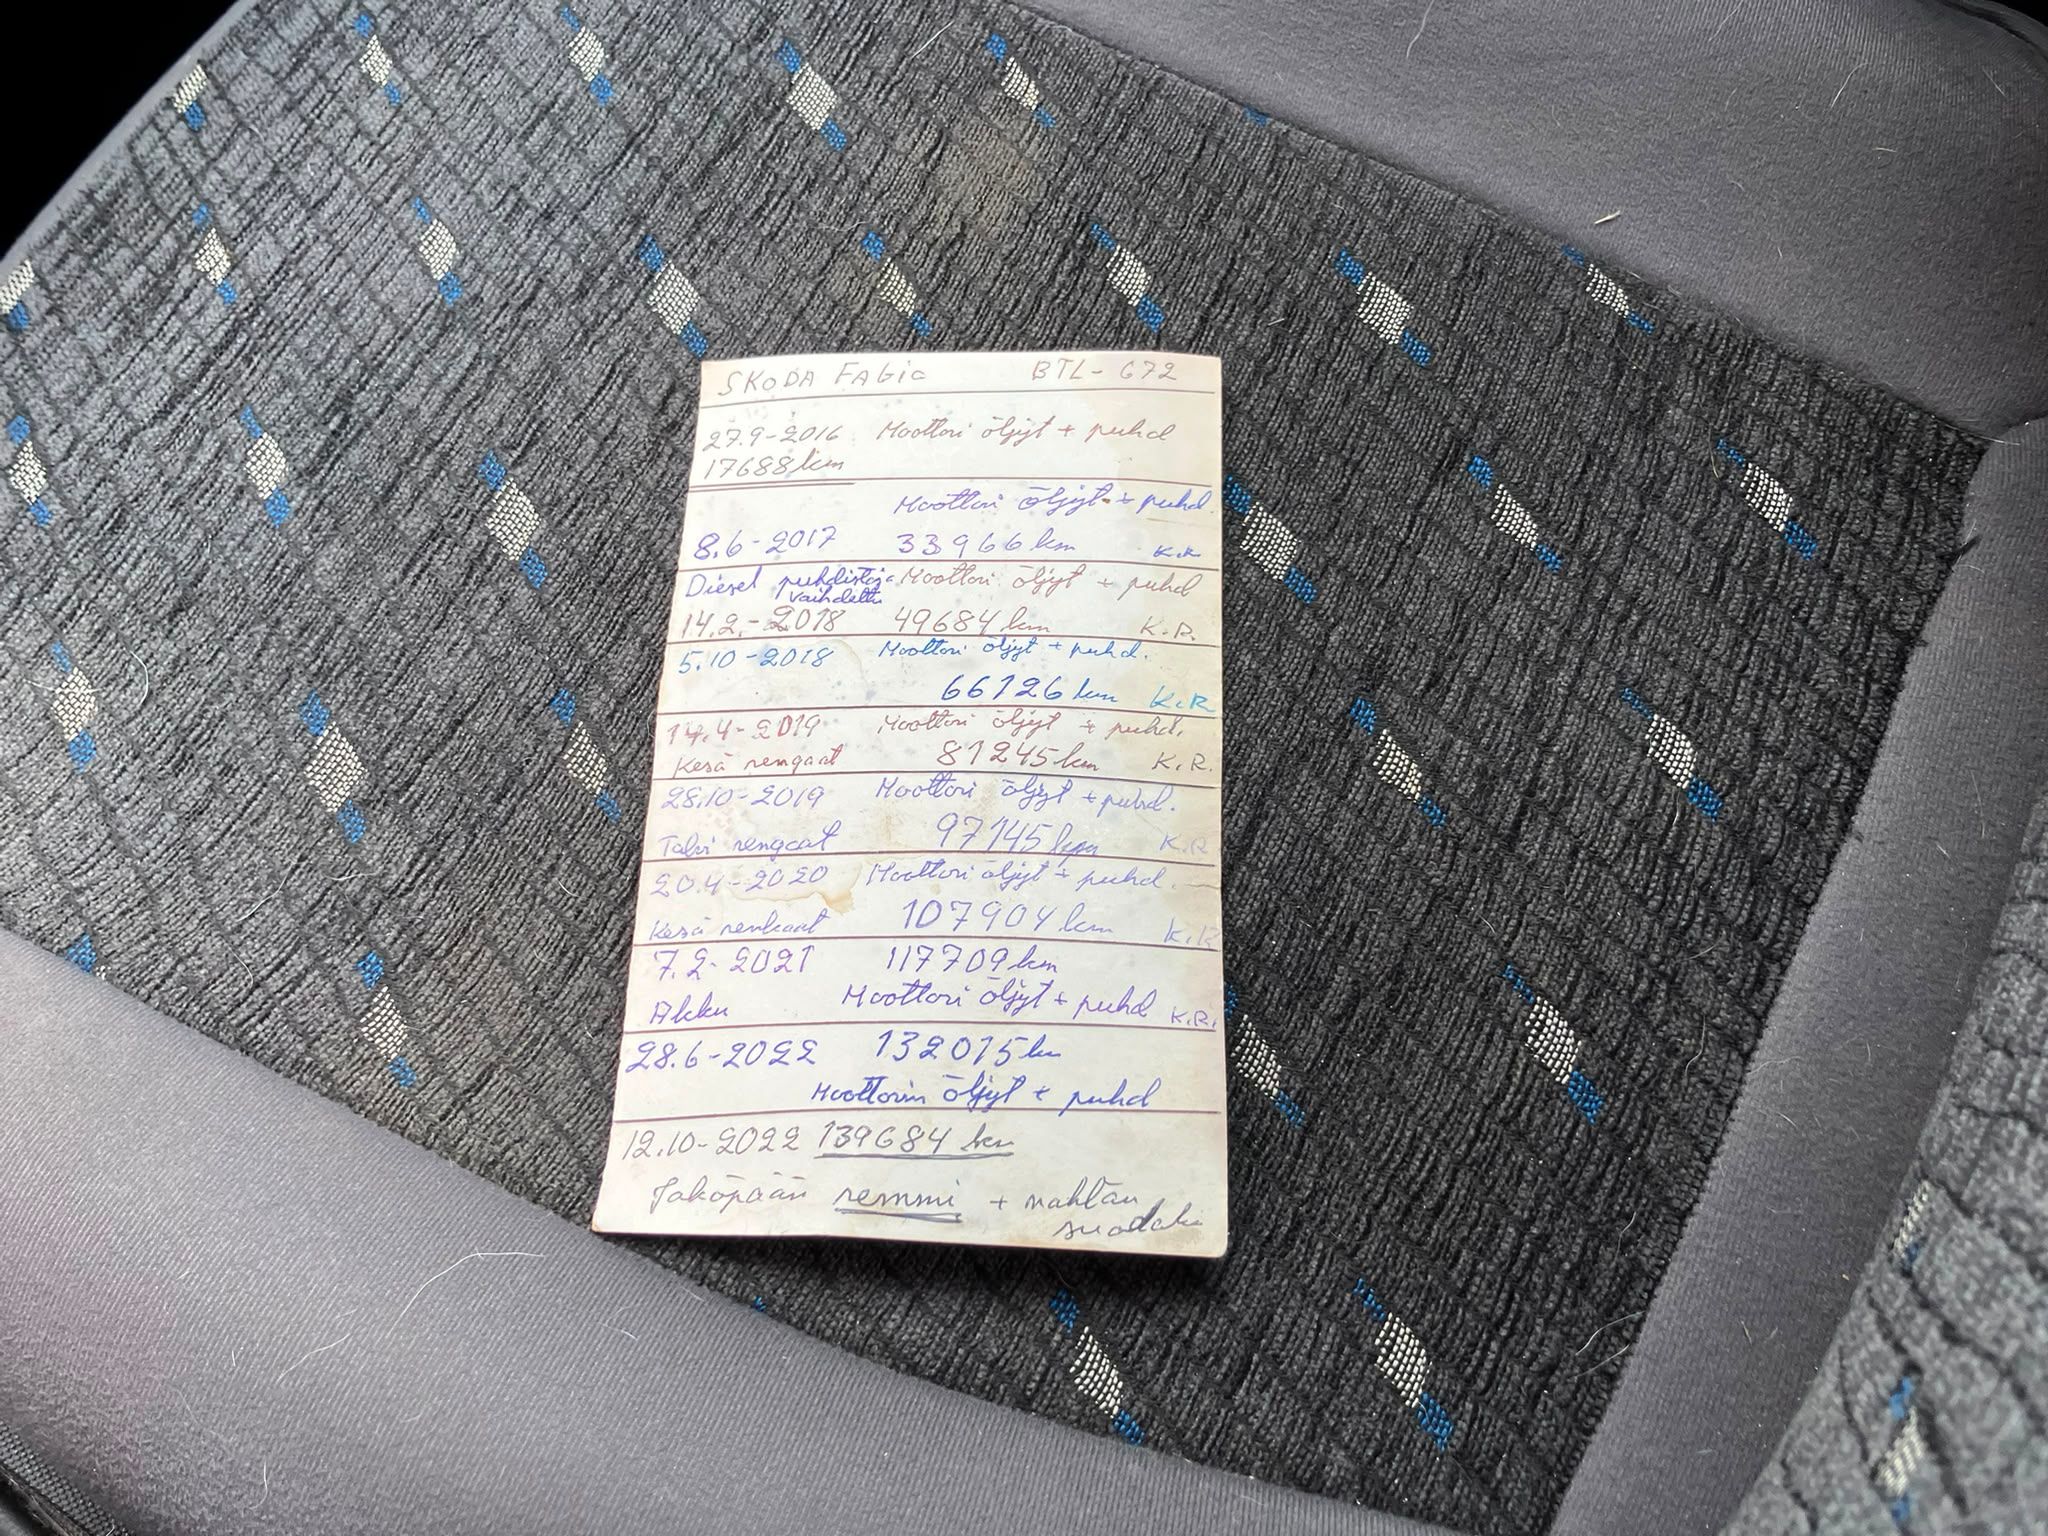 SKODA FAbia BTL-672
27.9-2016 Moottori öljyt + puhd
17688 km
Moottori öljyt + puhd.
8.6-2017 33966 km K.R
Diesel puhdistaja Moottori öljyt + puhd
vaihdettu
14.2.-2018 49684 km K.R.
5.10-2018 Moottori öljyt + puhd.
66126 km K.R
14.4-2019 Moottori öljyt + puhd.
Kesä rengaat 81245 km K.R.
28.10-2019 Moottori öljyt + puhd.
Talvi rengaat 97145 km K.R
20.4-2020 Moottori öljyt + puhd.
Kesä renkaat 107904 km K.R
7.2-2021 117709 km
Akku Moottori öljyt + puhd K.R.
28.6-2022 132015 km
Moottorin öljyt + puhd
12.10-2022 139684 km
Jakopään remmi +